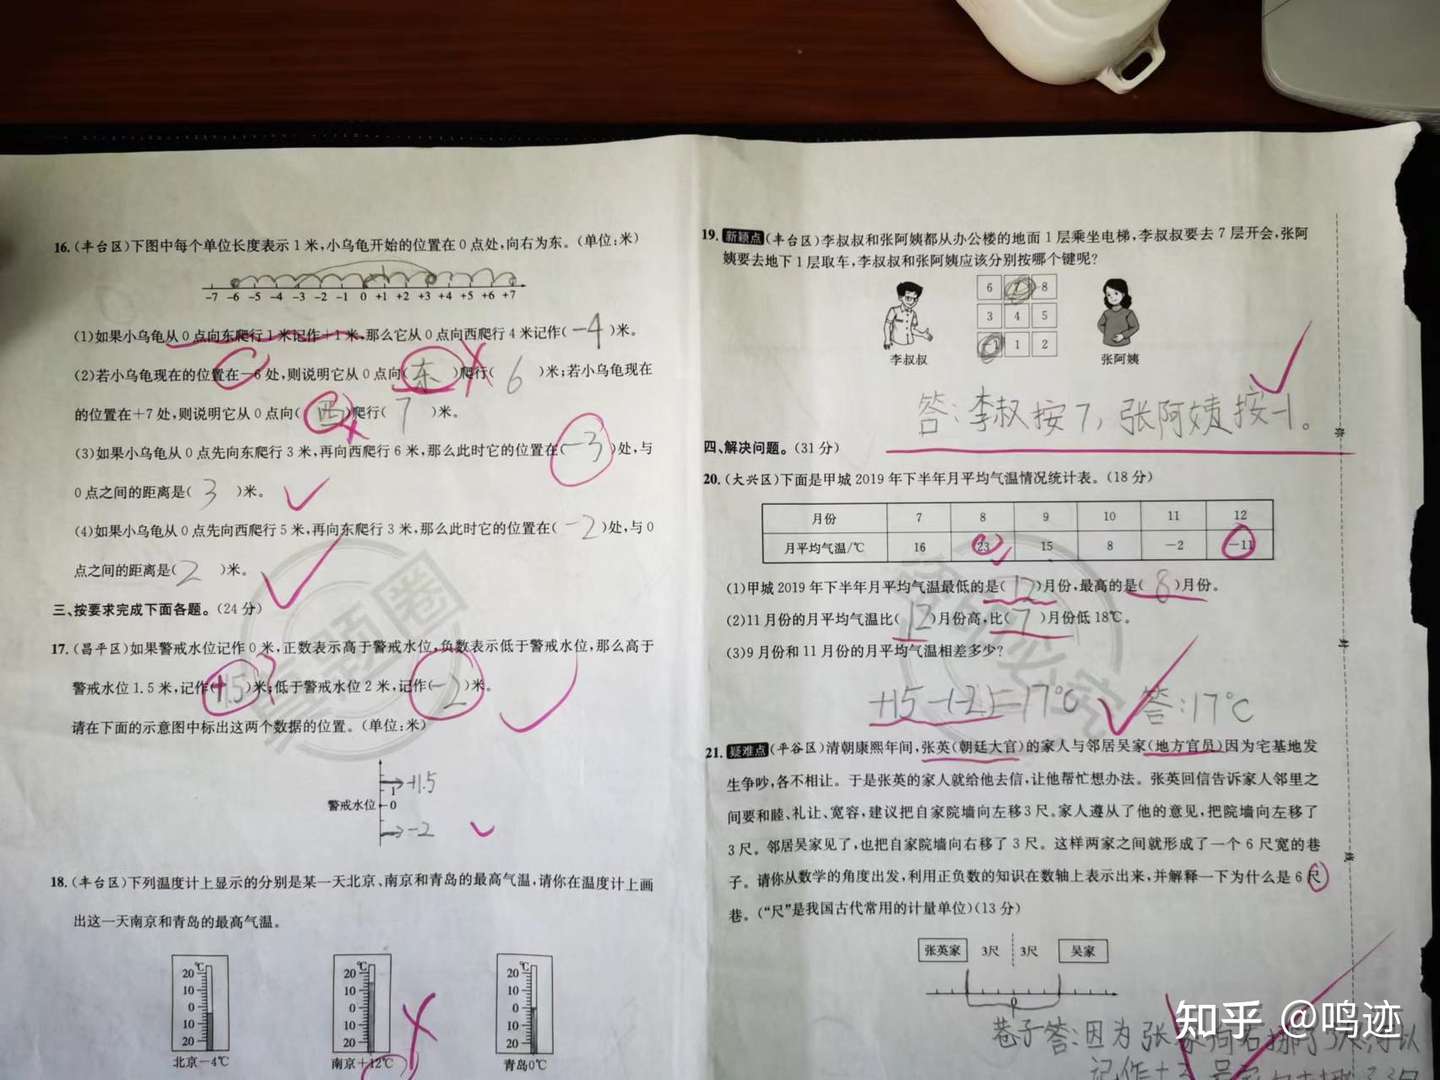 16.(丰台区)下图中每个单位长度表示1米,小乌龟开始的位置在0点处,向右为东。(单位:米)
-7 -6 -5 -4 -3 -2 -1 0 +1 +2 +3 +4 +5 +6 +7
(1)如果小乌龟从0点向东爬行1米记作+1米,那么它从0点向西爬行4米记作(-4)米。
(2)若小乌龟现在的位置在-6处,则说明它从0点向(东)爬行(6)米;若小乌龟现在
的位置在+7处,则说明它从0点向(西)爬行(7)米。
(3)如果小乌龟从0点先向东爬行3米,再向西爬行6米,那么此时它的位置在(-3)处,与
0点之间的距离是(3)米。
(4)如果小乌龟从0点先向西爬行5米,再向东爬行3米,那么此时它的位置在(-2)处,与0
点之间的距离是(2)米。
三、按要求完成下面各题。(24分)
17.(昌平区)如果警戒水位记作0米,正数表示高于警戒水位,负数表示低于警戒水位,那么高于
警戒水位1.5米,记作(+1.5)米;低于警戒水位2米,记作(-2)米。
请在下面的示意图中标出这两个数据的位置。(单位:米)
+1.5
1
警戒水位 0
-2
18.(丰台区)下列温度计上显示的分别是某一天北京、南京和青岛的最高气温,请你在温度计上画
出这一天南京和青岛的最高气温。
℃ ℃ ℃
20 20 20
10 10 10
0 0 0
10 10 10
20 20 20
北京-4℃ 南京+12℃ 青岛0℃
19.新颖点(丰台区)李叔叔和张阿姨都从办公楼的地面1层乘坐电梯,李叔叔要去7层开会,张阿
姨要去地下1层取车,李叔叔和张阿姨应该分别按哪个键呢?
6 7 8
3 4 5
-1 1 2
李叔叔 张阿姨
答:李叔按7,张阿姨按-1。
四、解决问题。(31分)
20.(大兴区)下面是甲城2019年下半年月平均气温情况统计表。(18分)
月份 7 8 9 10 11 12
月平均气温/℃ 16 23 15 8 -2 -11
(1)甲城2019年下半年月平均气温最低的是(12)月份,最高的是(8)月份。
(2)11月份的月平均气温比(12)月份高,比(7)月份低18℃。
(3)9月份和11月份的月平均气温相差多少?
+15-(-2)=17℃ 答:17℃
21.疑难点(平谷区)清朝康熙年间,张英(朝廷大官)的家人与邻居吴家(地方官员)因为宅基地发
生争吵,各不相让。于是张英的家人就给他去信,让他帮忙想办法。张英回信告诉家人邻里之
间要和睦、礼让、宽容,建议把自家院墙向左移3尺。家人遵从了他的意见,把院墙向左移了
3尺。邻居吴家见了,也把自家院墙向右移了3尺。这样两家之间就形成了一个6尺宽的巷
子。请你从数学的角度出发,利用正负数的知识在数轴上表示出来,并解释一下为什么是6尺
巷。(“尺”是我国古代常用的计量单位)(13分)
张英家 3尺 3尺 吴家
0
巷子 答:因为张家向右挪了3尺
知乎 @鸣迹